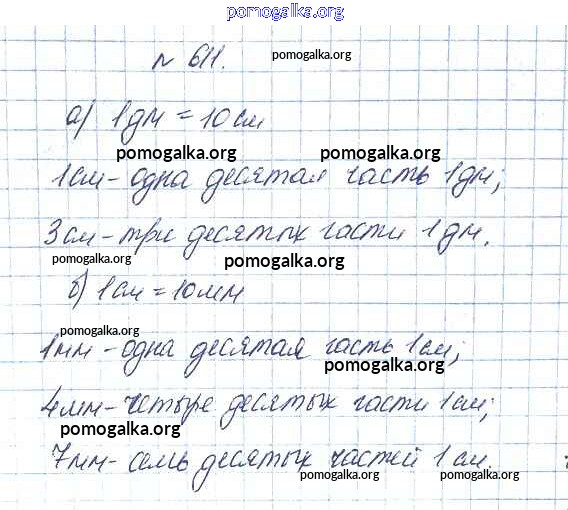 pomogalka.org
№ 611. pomogalka.org
а) 1 дм = 10 см
pomogalka.org pomogalka.org
1 см - одна десятая часть 1 дм;
3 см - три десятых части 1 дм.
pomogalka.org pomogalka.org
б) 1 см = 10 мм pomogalka.org
pomogalka.org
1 мм - одна десятая часть 1 см;
pomogalka.org
4 мм - четыре десятых части 1 см;
pomogalka.org
7 мм - семь десятых частей 1 см.
pomogalka.org pomogalka.org